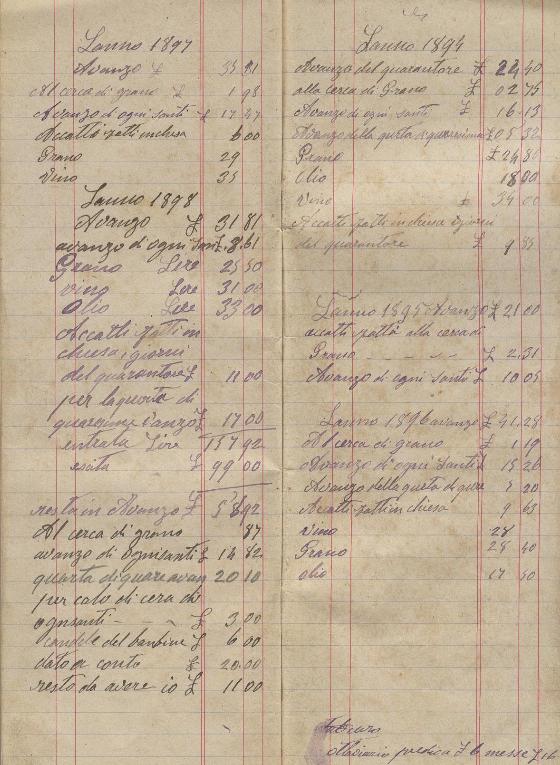 Lanno 1897
Avanzo £ 35 81
Al cerca di grano £ 1 98
Avanzo di ogni santi £ 17 47
Accatti fatti in chiesa 6 00
Grano 29
Vino 35
Lanno 1898
Avanzo £ 31 81
avanzo di ogni santi £ 8.61
Grano Lire 25 50
vino Lire 31 00
Olio Lire 33 00
Accatti fatti in
chiesa i giorni
del quarantore £ 11 00
per la questa di
quaresime avanzo £ 17 00
entrata Lire 157 92
esita £ 99 00
resta in Avanzo £ 58 92
Al cerca di grano 87
avanzo di Ognisanti £ 14 82
quarta di quare avan 20 10
per calo di cera di
ognisanti - - £ 3.00
candele del banbine £ 6 00
dato a conto £ 20.00
resto da avere io £ 11 00
Lanno 1894
Avanzo del quarantore £ 24 40
alla cerca di Grano £ 02 75
Avanzo di ogni santi £ 16.13
Avanzo della questa di quaresima £ 05 32
Grano £ 24 80
Olio 18 00
Vino £ 34 00
Accatti fatti in chiesa i giorni
del quarantore £ 9 85
Lanno 1895 Avanzo £ 21.00
accatti fatta alla cerca di
Grano - - - £ 2.31
Avanzo di ogni santi £ 10 05
Lanno 1896 avanzo £ 41.28
Al cerca di grano £ 1 19
Avanzo di ogni Santi £ 15 26
Avanzo della questa di quare 5 20
Accatti fatti in chiesa 9 63
Vino 28
Grano 28 40
olio 17 50
predica £ 6 messe £